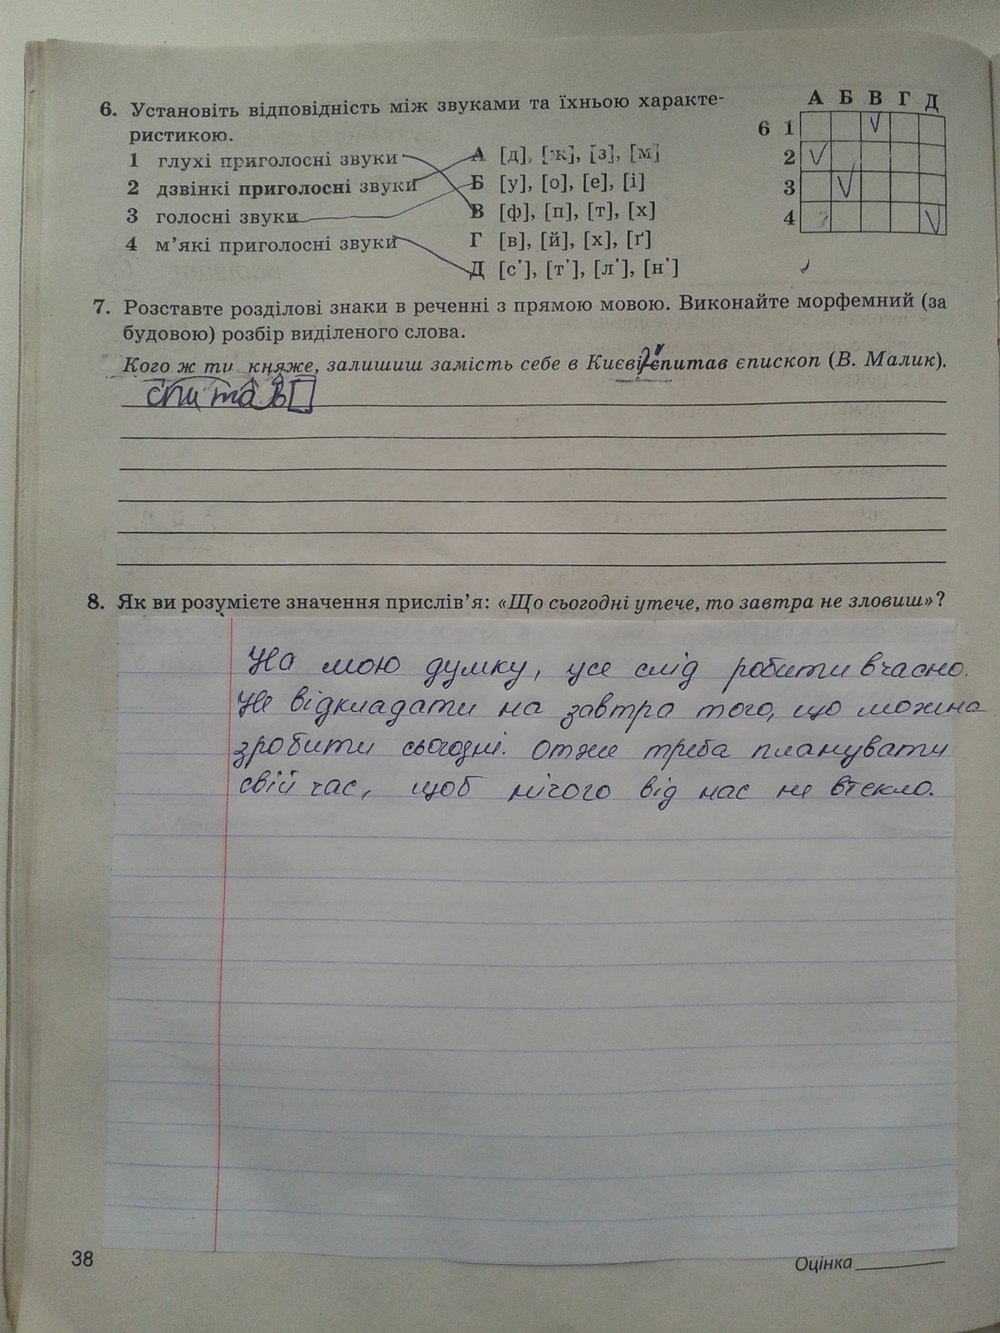 6. Установіть відповідність між звуками та їхньою характе-
ристикою.
1 глухі приголосні звуки
2 дзвінкі приголосні звуки
3 голосні звуки
4 м'які приголосні звуки
А [д], [ж], [з], [м]
Б [у], [о], [е], [і]
В [ф], [п], [т], [х]
Г [в], [й], [х], [ґ]
Д [с'], [т'], [л'], [н']
А Б В Г Д
6 1
2
3
4
7. Розставте розділові знаки в реченні з прямою мовою. Виконайте морфемний (за
будовою) розбір виділеного слова.
Кого ж ти княже, залишиш замість себе в Києві?" спитав єпископ (В. Малик).
спитав
8. Як ви розумієте значення прислів'я: «Що сьогодні утече, то завтра не зловиш»?
На мою думку, усе слід робити вчасно.
Не відкладати на завтра того, що можна
зробити сьогодні. Отже треба планувати
свій час, щоб нічого від нас не втекло.
38
Оцінка